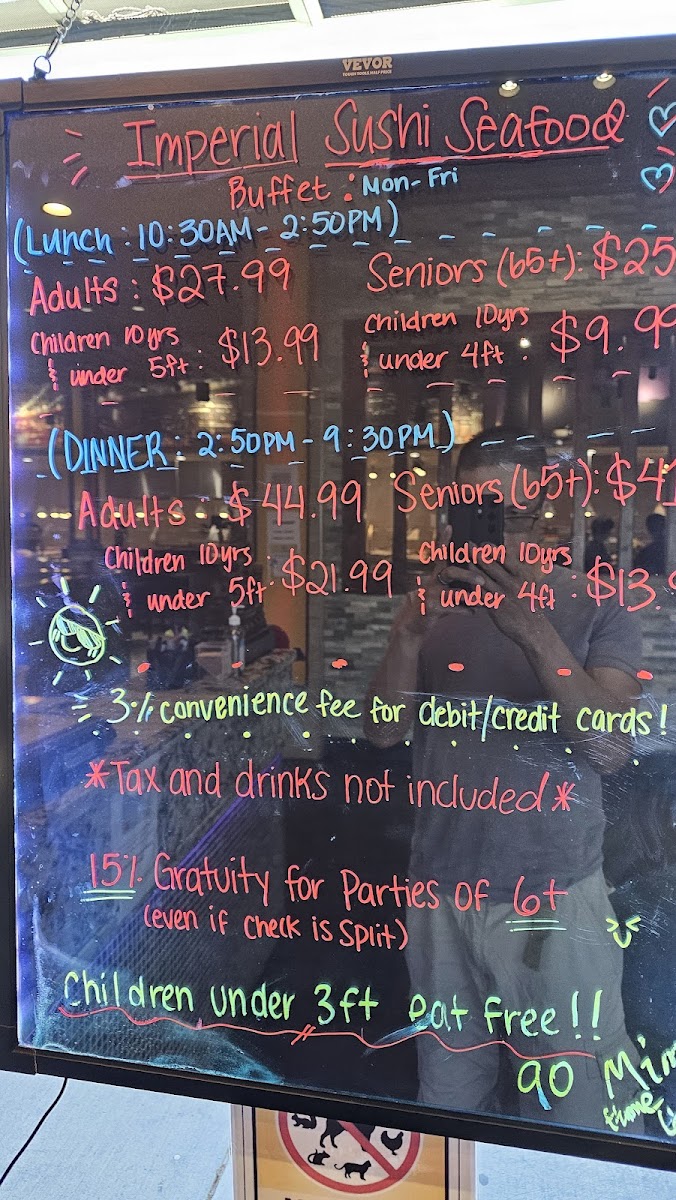 VEVOR
TOUGH TOOLS, HALF PRICE
Imperial Sushi Seafood
Buffet : Mon-Fri
(Lunch : 10:30AM - 2:50PM)
Adults : $27.99 Seniors (65+): $25
Children 10yrs & under 5ft : $13.99
Children 10yrs & under 4ft : $9.99
(DINNER : 2:50PM - 9:30PM)
Adults $44.99 Seniors (65+): $41
Children 10yrs & under 5ft : $21.99
Children 10yrs & under 4ft : $13.9
3% convenience fee for debit/credit cards!
*Tax and drinks not included*
15% Gratuity for Parties of 6+
(even if check is split)
Children under 3ft eat free!!
90 Min
time